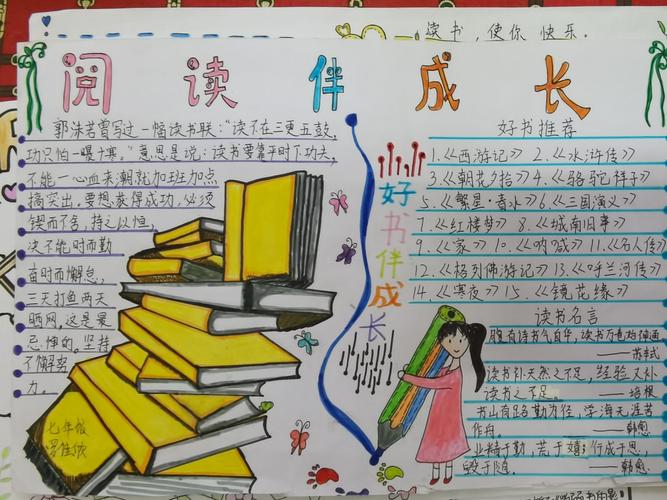 读书，使你快乐。
阅读伴成长
郭沫若曾写过一幅读书联："读不在三更五鼓，
功只怕一曝十寒。"意思是说：读书要靠平时下功夫，
不能一心血来潮就加班加点
搞突出。要想获得成功，必须
锲而不舍，持之以恒，
决不能时而勤
奋时而懈怠，
三天打鱼两天
晒网，这是最
忌惮的。坚持
不懈努
力。
七年级
好书伴成长
好书推荐
1.《西游记》 2.《水浒传》
3.《朝花夕拾》 4.《骆驼祥子》
5.《繁星·春水》 6.《三国演义》
7.《红楼梦》 8.《城南旧事》
9.《家》 10.《呐喊》 11.《名人传》
12.《格列佛游记》 13.《呼兰河传》
14.《寒夜》 15.《镜花缘》
读书名言
腹有诗书气自华，读书万卷始通神
——苏轼
读书补天然之不足，经验又补
读书之不足。——培根
书山有路勤为径，学海无涯苦
作舟。——韩愈
业精于勤，荒于嬉；行成于思，
毁于随。——韩愈